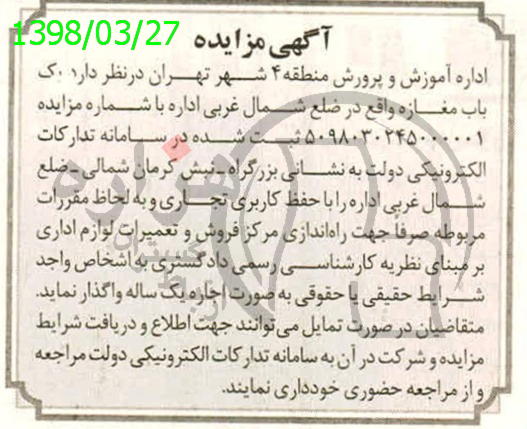 1398/03/27
آگهی مزایده
اداره آموزش و پرورش منطقه ۴ شهر تهران درنظر دارد یک
باب مغازه واقع در ضلع شمال غربی اداره با شماره مزایده
۵۰۹۸۰۳۰۲۴۵۰۰۰۰۰۱ ثبت شده در سامانه تدارکات
الکترونیکی دولت به نشانی بزرگراه ـ نبش کرمان شمالی ـ ضلع
شمال غربی اداره را با حفظ کاربری تجاری و به لحاظ مقررات
مربوطه صرفاً جهت راه‌اندازی مرکز فروش و تعمیرات لوازم اداری
بر مبنای نظریه کارشناسی رسمی دادگستری به اشخاص واجد
شرایط حقیقی یا حقوقی به صورت اجاره یک ساله واگذار نماید.
متقاضیان در صورت تمایل می‌توانند جهت اطلاع و دریافت شرایط
مزایده و شرکت در آن به سامانه تدارکات الکترونیکی دولت مراجعه
و از مراجعه حضوری خودداری نمایند.
هزاره